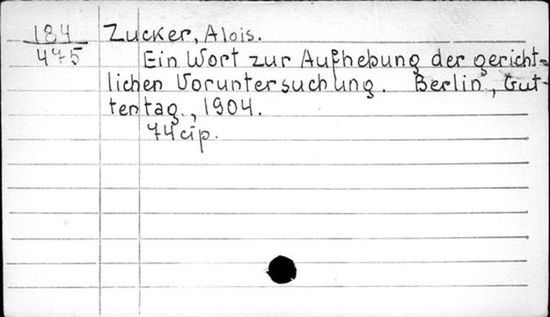 184 Zucker, Alois.
475 Ein Wort zur Aufhebung der gericht-
lichen Voruntersuchung. Berlin, Gut-
tentag., 1904.
74 cтр.